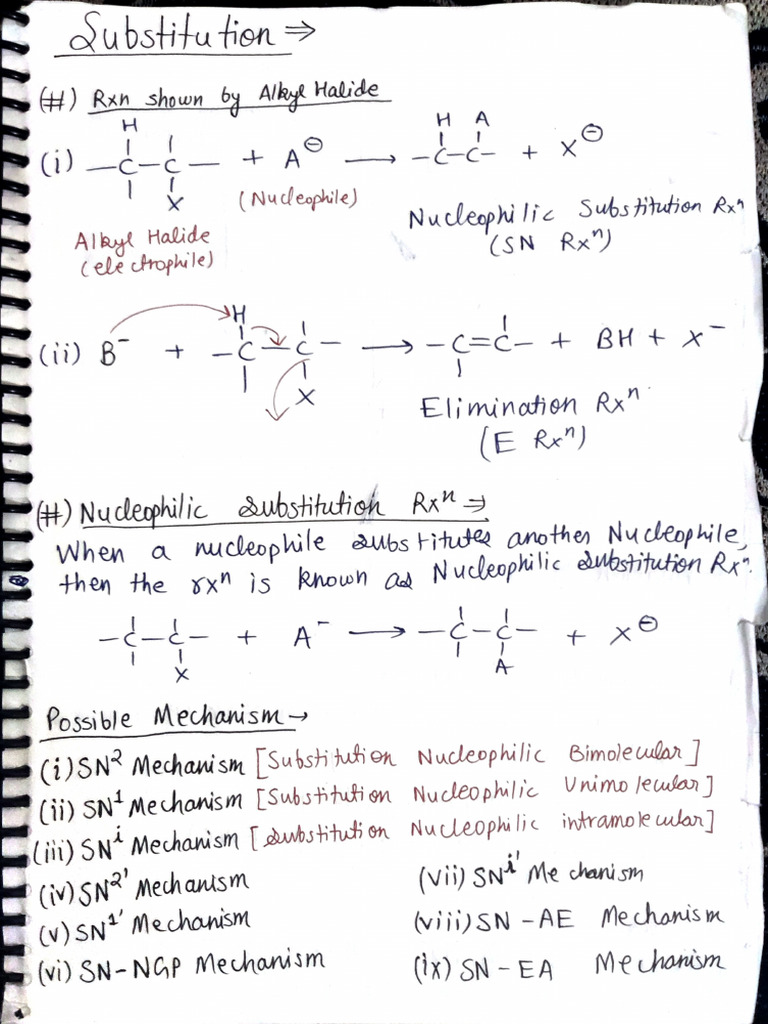 Substitution ⇒
(#) Rxn shown by Alkyl Halide
H H A
(i) —C—C— + A⊖ → —C—C— + X⊖
X
(Nucleophile)
Alkyl Halide
(electrophile)
Nucleophilic Substitution Rxⁿ
(SN Rxⁿ)
H
(ii) B⁻ + —C—C— → —C=C— + BH + X⁻
X
Elimination Rxⁿ
(E Rxⁿ)
(#) Nucleophilic substitution Rxⁿ ⇒
When a nucleophile substitutes another Nucleophile,
then the rxⁿ is known as Nucleophilic substitution Rxⁿ.
—C—C— + A⁻ → —C—C— + X⊖
X A
Possible Mechanism →
(i) SN² Mechanism [Substitution Nucleophilic Bimolecular]
(ii) SN¹ Mechanism [Substitution Nucleophilic Unimolecular]
(iii) SNⁱ Mechanism [substitution Nucleophilic intramolecular]
(iv) SN²' Mechanism
(v) SN¹' Mechanism
(vi) SN-NGP Mechanism
(vii) SNⁱ' Mechanism
(viii) SN-AE Mechanism
(ix) SN-EA Mechanism